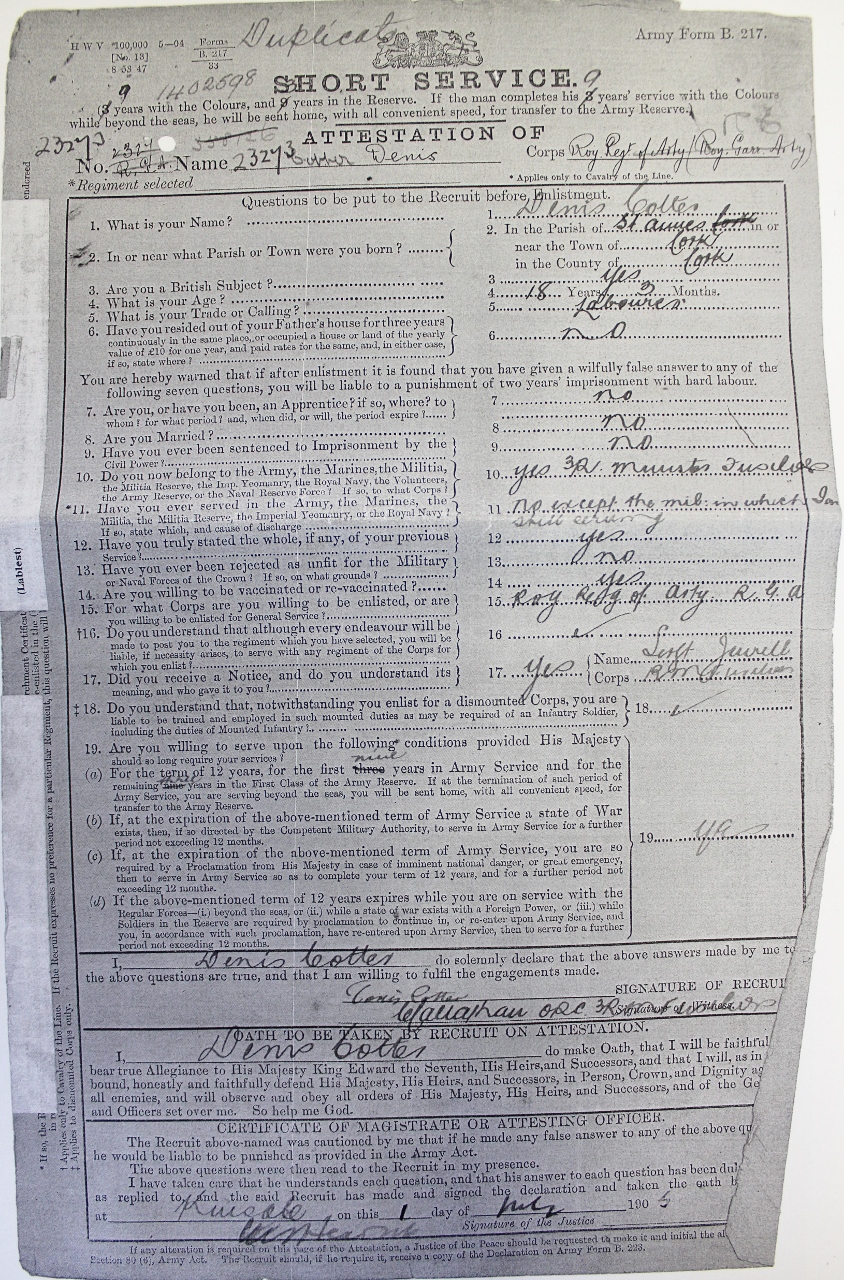 Duplicate
H W V *100,000 5—04 Forms B. 217 33
[No. 13]
8 53 47
Army Form B. 217.
9 1402598
SHORT SERVICE.
(8 years with the Colours, and 9 years in the Reserve. If the man completes his 8 years' service with the Colours 9
while beyond the seas, he will be sent home, with all convenient speed, for transfer to the Army Reserve.)
23273
ATTESTATION OF
No. R.G.A. Name 23273 Cotter Denis Corps Roy Regt of Arty (Roy. Garr. Arty)
*Regiment selected * Applies only to Cavalry of the Line.
Questions to be put to the Recruit before Enlistment.
1. What is your Name? 1. Denis Cotter
2. In or near what Parish or Town were you born? 2. In the Parish of St Annes Cork in or
near the Town of Cork
in the County of Cork
3. Are you a British Subject? 3 yes
4. What is your Age? 4. 18 Years 3 Months.
5. What is your Trade or Calling? 5. Labourer
6. Have you resided out of your Father's house for three years
continuously in the same place, or occupied a house or land of the yearly
value of £10 for one year, and paid rates for the same, and, in either case,
if so, state where? 6. no
You are hereby warned that if after enlistment it is found that you have given a wilfully false answer to any of the
following seven questions, you will be liable to a punishment of two years' imprisonment with hard labour.
7. Are you, or have you been, an Apprentice? if so, where? to
whom? for what period? and, when did, or will, the period expire? 7 no
8. Are you Married? 8 no
9. Have you ever been sentenced to Imprisonment by the
Civil Power? 9. no
10. Do you now belong to the Army, the Marines, the Militia,
the Militia Reserve, the Imp. Yeomanry, the Royal Navy, the Volunteers,
the Army Reserve, or the Naval Reserve Force? If so, to what Corps? 10. yes 3R. Munster Fusiliers
*11. Have you ever served in the Army, the Marines, the
Militia, the Militia Reserve, the Imperial Yeomanry, or the Royal Navy?
If so, state which, and cause of discharge 11 no except the mil: in which I am
still serving
12. Have you truly stated the whole, if any, of your previous
Service? 12 yes
13. Have you ever been rejected as unfit for the Military
or Naval Forces of the Crown? If so, on what grounds? 13. no
14. Are you willing to be vaccinated or re-vaccinated? 14 yes
15. For what Corps are you willing to be enlisted, or are
you willing to be enlisted for General Service? 15. Roy Regt of Arty R. G. A
†16. Do you understand that although every endeavour will be
made to post you to the regiment which you have selected, you will be
liable, if necessity arises, to serve with any regiment of the Corps for
which you enlist? 16
17. Did you receive a Notice, and do you understand its
meaning, and who gave it to you? 17. yes Name Sergt
Corps
‡ 18. Do you understand that, notwithstanding you enlist for a dismounted Corps, you are
liable to be trained and employed in such mounted duties as may be required of an Infantry Soldier,
including the duties of Mounted Infantry? 18.
19. Are you willing to serve upon the following conditions provided His Majesty
should so long require your services?
nine
(a) For the term of 12 years, for the first three years in Army Service and for the
remaining nine years in the First Class of the Army Reserve. If at the termination of such period of
Army Service, you are serving beyond the seas, you will be sent home, with all convenient speed, for
transfer to the Army Reserve.
(b) If, at the expiration of the above-mentioned term of Army Service a state of War
exists, then, if so directed by the Competent Military Authority, to serve in Army Service for a further
period not exceeding 12 months. 19. yes
(c) If, at the expiration of the above-mentioned term of Army Service, you are so
required by a Proclamation from His Majesty in case of imminent national danger, or great emergency,
then to serve in Army Service so as to complete your term of 12 years, and for a further period not
exceeding 12 months.
(d) If the above-mentioned term of 12 years expires while you are on service with the
Regular Forces—(i.) beyond the seas, or (ii.) while a state of war exists with a Foreign Power, or (iii.) while
Soldiers in the Reserve are required by proclamation to continue in, or re-enter upon Army Service, and
you, in accordance with such proclamation, have re-entered upon Army Service, then to serve for a further
period not exceeding 12 months.
I, Denis Cotter do solemnly declare that the above answers made by me to
the above questions are true, and that I am willing to fulfil the engagements made.
Denis Cotter SIGNATURE OF RECRUI
Signature of Witness.
OATH TO BE TAKEN BY RECRUIT ON ATTESTATION.
I, Denis Cotter do make Oath, that I will be faithful
bear true Allegiance to His Majesty King Edward the Seventh, His Heirs, and Successors, and that I will, as in
bound, honestly and faithfully defend His Majesty, His Heirs, and Successors, in Person, Crown, and Dignity ag
all enemies, and will observe and obey all orders of His Majesty, His Heirs, and Successors, and of the Ge
and Officers set over me. So help me God.
CERTIFICATE OF MAGISTRATE OR ATTESTING OFFICER.
The Recruit above-named was cautioned by me that if he made any false answer to any of the above qu
he would be liable to be punished as provided in the Army Act.
The above questions were then read to the Recruit in my presence.
I have taken care that he understands each question, and that his answer to each question has been dul
as replied to, and the said Recruit has made and signed the declaration and taken the oath b
at Kinsale on this 1 day of July 190 5
Signature of the Justice
If any alteration is required on this page of the Attestation, a Justice of the Peace should be requested to make it and initial the al
Section 80 (6), Army Act. The Recruit should, if he require it, receive a copy of the Declaration on Army Form B. 223.
† Applies only to Cavalry of the Line.
‡ Applies to dismounted Corps only.